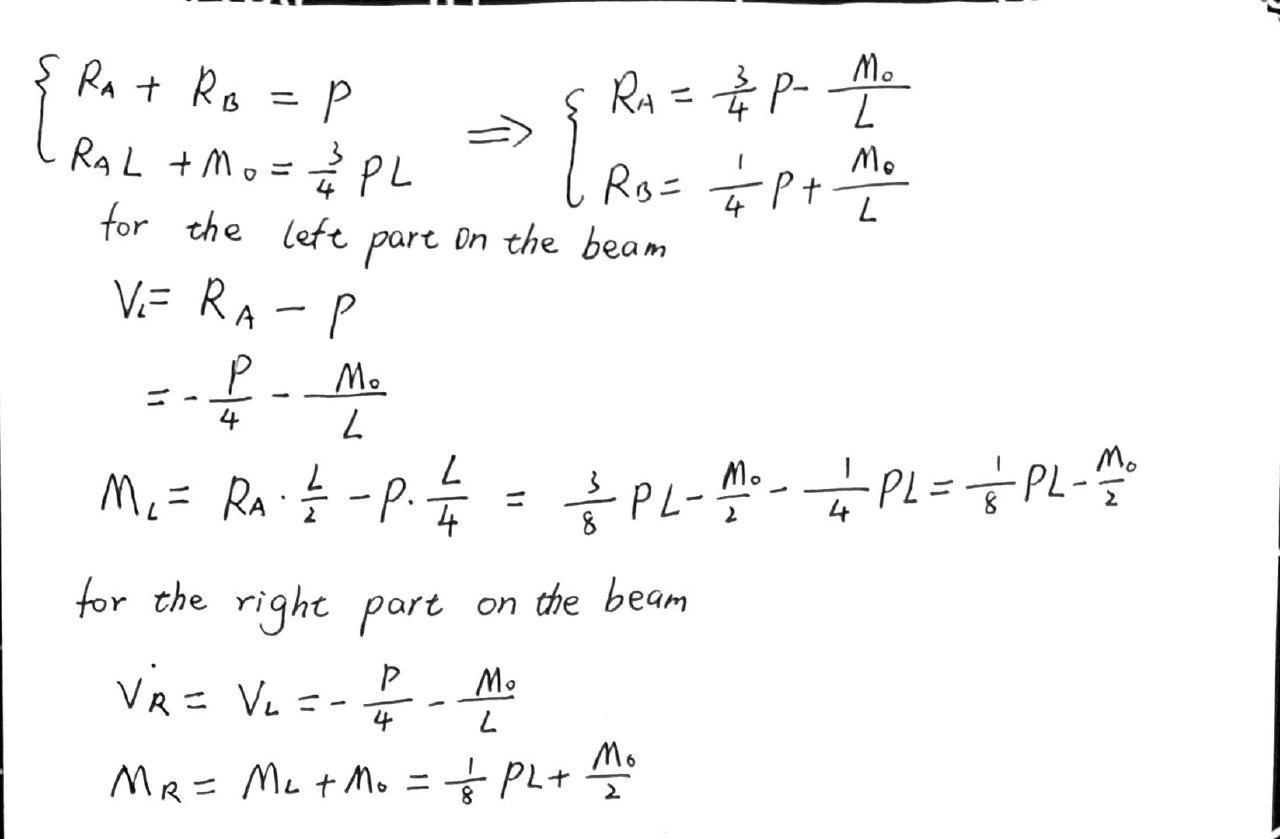 { R_A + R_B = P
R_A L + M_0 = 3/4 PL
⟹ { R_A = 3/4 P - M_0/L
R_B = 1/4 P + M_0/L
for the left part on the beam
V_L = R_A - P
= - P/4 - M_0/L
M_L = R_A · L/2 - P · L/4 = 3/8 PL - M_0/2 - 1/4 PL = 1/8 PL - M_0/2
for the right part on the beam
V_R = V_L = - P/4 - M_0/L
M_R = M_L + M_0 = 1/8 PL + M_0/2